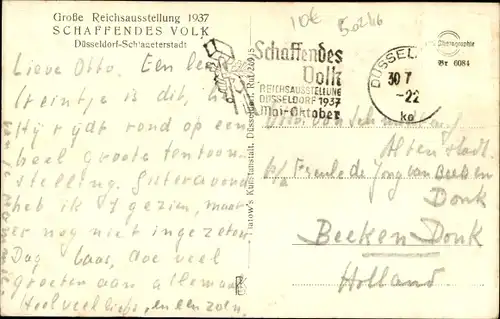 Große Reichsausstellung 1937
SCHAFFENDES VOLK
Düsseldorf-Schlageterstadt
10€
50246
Lieve Otto. Een leuk
treintje is dit, hè
Hij rijdt rond op een
heel groote tentoon-
stelling. Gisteravond
heb ik 't gezien, maar
er nog niet ingezeten.
Dag baas, doe veel
groeten aan allemaal
Heel veel liefs, en een zoen,
Schaffendes
Volk
REICHSAUSSTELLUNG
DÜSSELDORF 1937
Mai-Oktober
DÜSSEL
30 7
-22
ko
Photographie
Br 6084
Otto van
p/a Freule de Jong van Beek en
Donk
Beek en Donk
Holland
Kunstanstalt, Düsseldorf